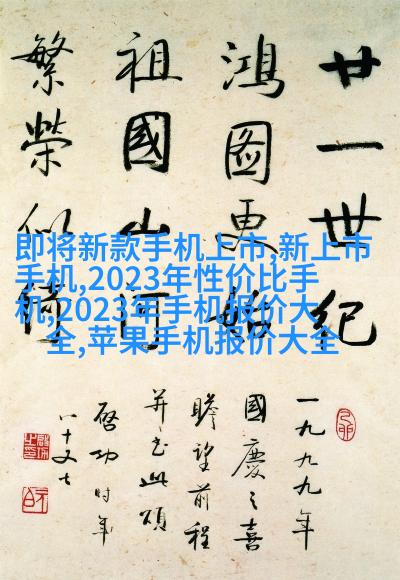 廿一世紀
鴻圖更
祖國山河
繁榮似
即将新款手机上市,新上市
手机,2023年性价比手
机,2023年手机报价大
全,苹果手机报价大全
一九九九年
國慶之喜
瞻望前程
并书此頌
啓功时年
八十又七